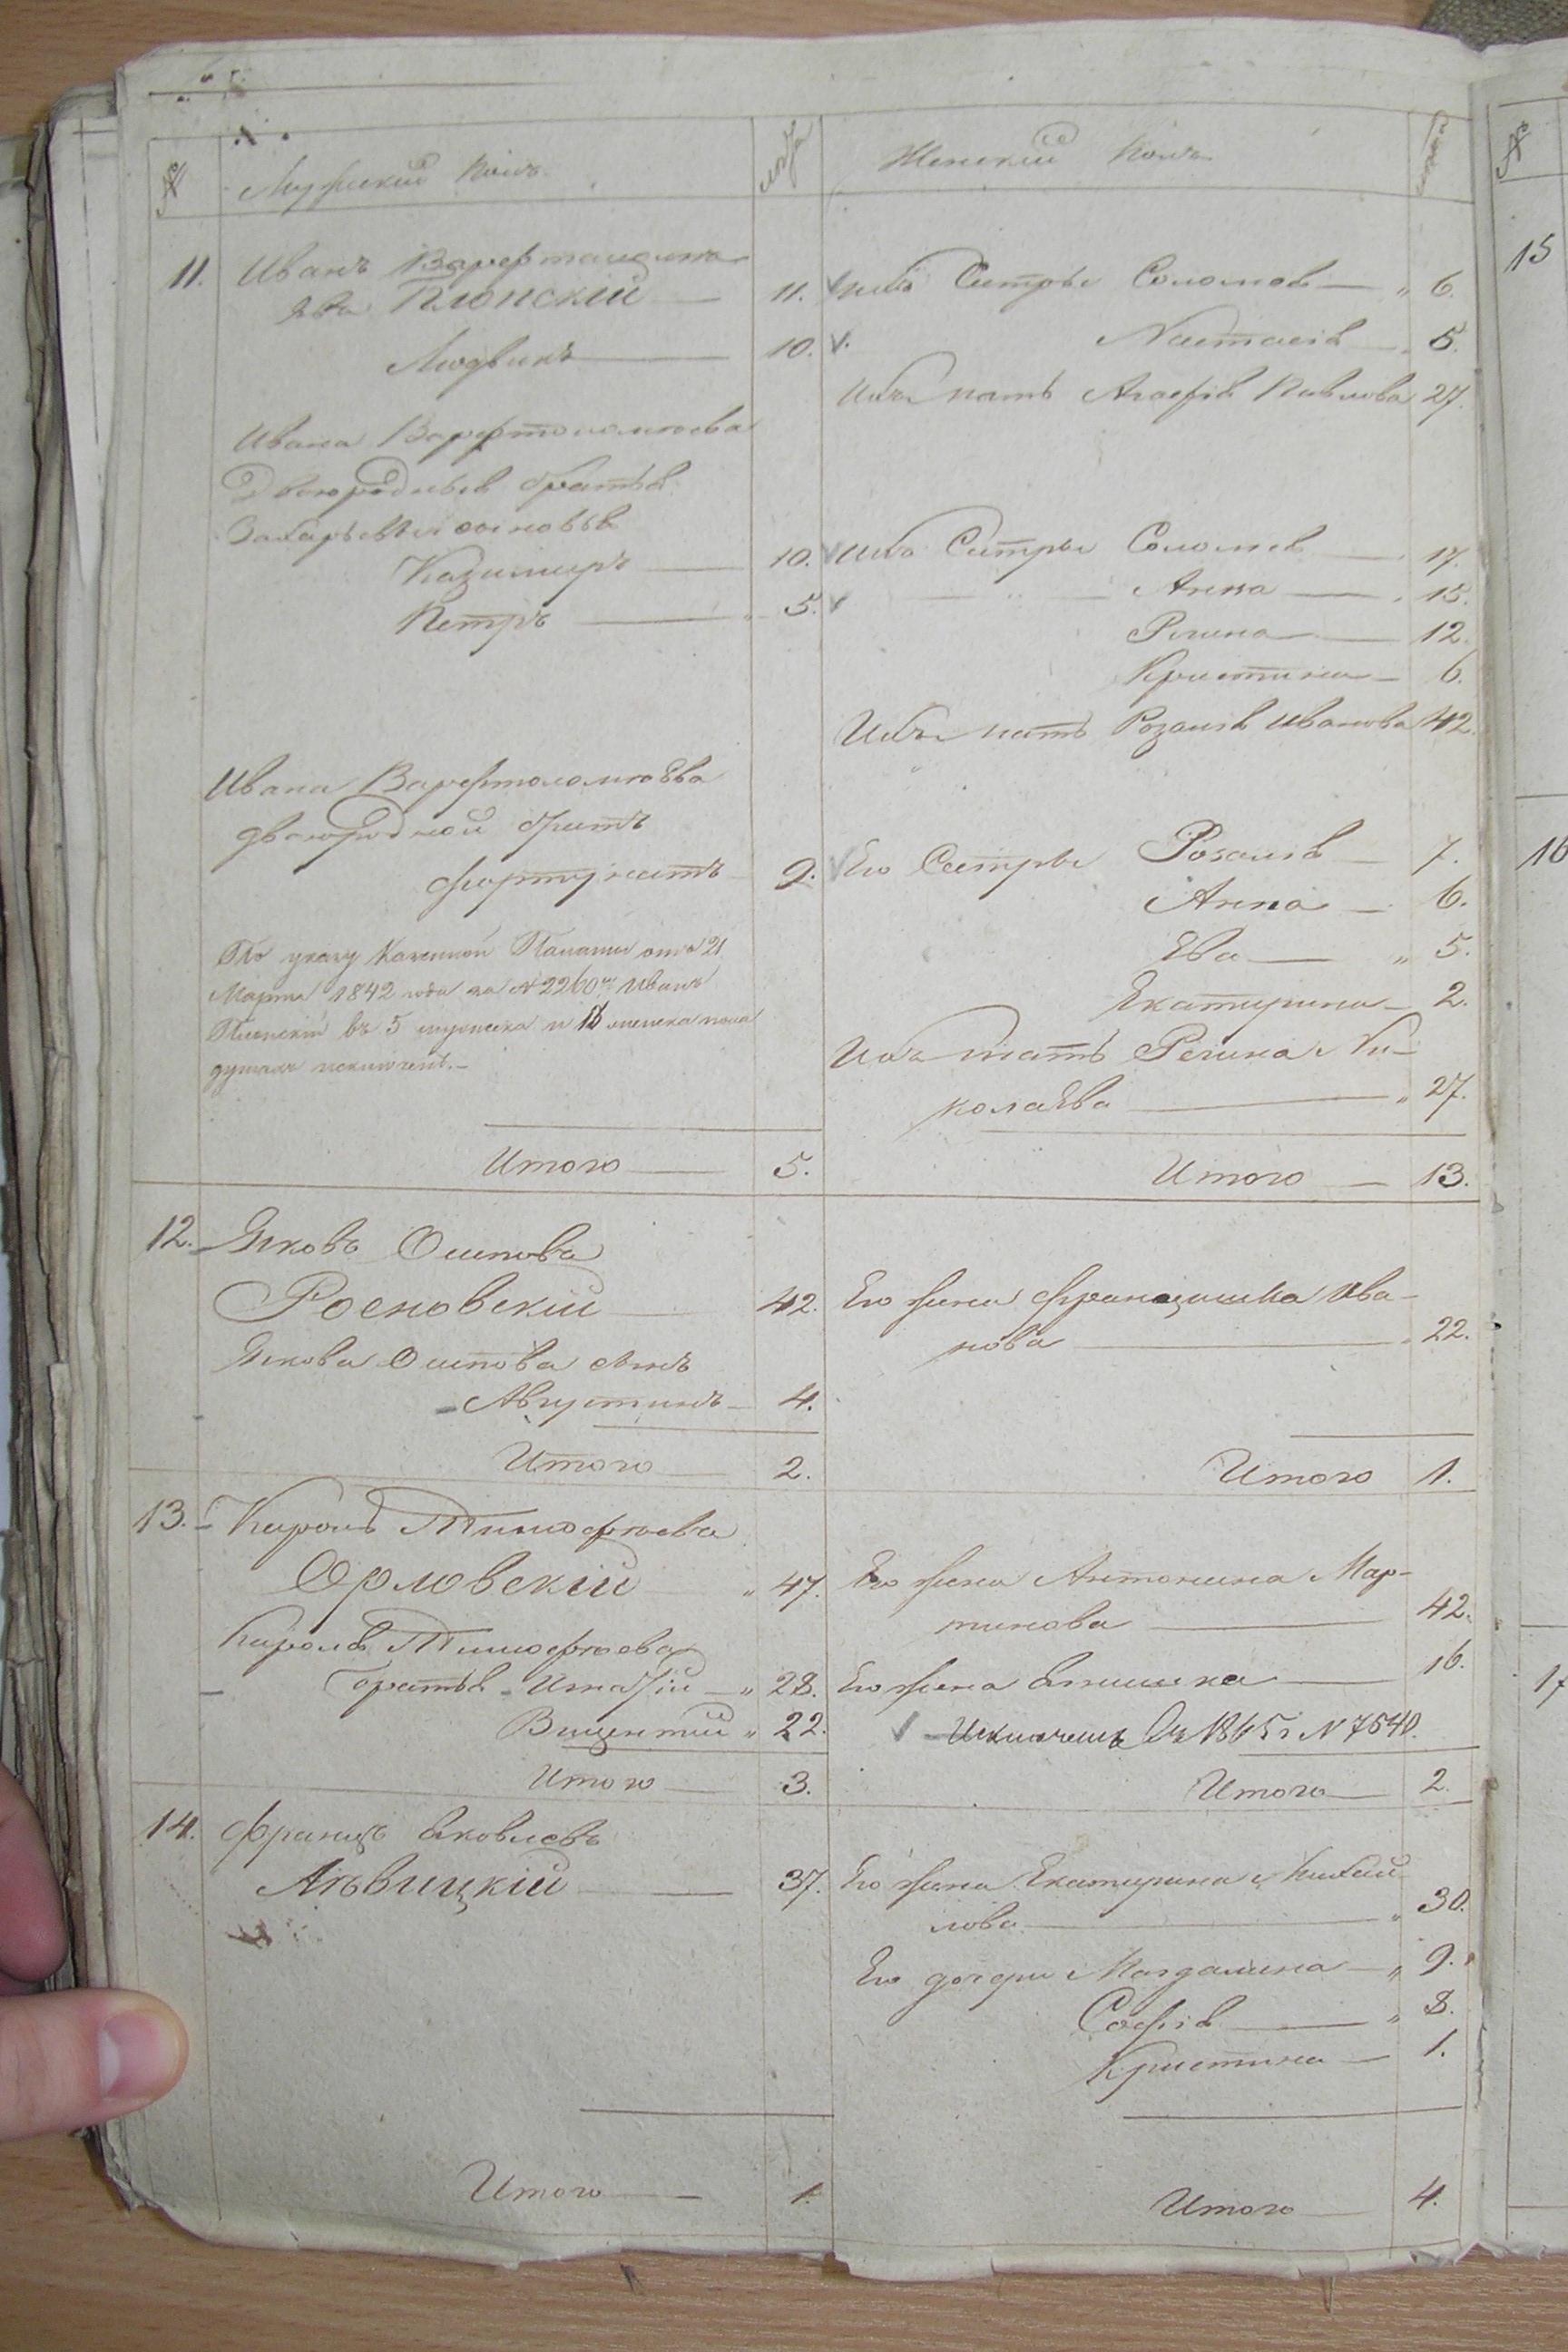 № Мужескій полъ лѣта Женскій полъ лѣта №
11. Иванъ
евъ Плонскій 11. ихъ Сестры Соломея 6.
Людвикъ 10. Настасія 5.
Ихъ мать Агафія Павлова 27.
Ивана Варфоломѣева
Двоюродныя братья
Захарьевы сыновья
Казимиръ 10. ихъ Сестры Соломея 17.
Петръ 5. Анна 15.
Регина 12.
Кристина 6.
Ихъ мать Розалія Иванова 42.
Ивана Варфтоломѣева
двоюродной братъ
Фортунатъ 9. Его Сестры Розалія 7.
Анна 6.
Ева 5.
Екатерина 2.
По указу Казенной Палаты отъ 21
Марта 1842 года за № 2260 Иванъ
Плонскій въ 5 мужеска и 13 женска пола
душахъ исключенъ.
Ихъ мать Регина Ни-
колаева 27.
Итого 5. Итого 13.
12. Яковъ Осиповъ
Росновскій 42. Его жена Францишка Ива-
нова 22.
Якова Осипова сынъ
Августинъ 4.
Итого 2. Итого 1.
13. Кароль Тимофѣевъ
Орловскій 47. Его жена Антонина Мар-
тинова 42.
Кароля Тимофѣева
братья Игнатій 28. Его жена 16.
Вицентій 22. Исключенъ 1865 г N 7540.
Итого 3. Итого 2.
14. Францъ Яковлевъ
Лѣвицкій 37. Его жена Екатерина Михай-
лова 30.
Его дочери Магдалина 9.
Софія 8.
Кристина 1.
Итого 1. Итого 4.
15
16
17